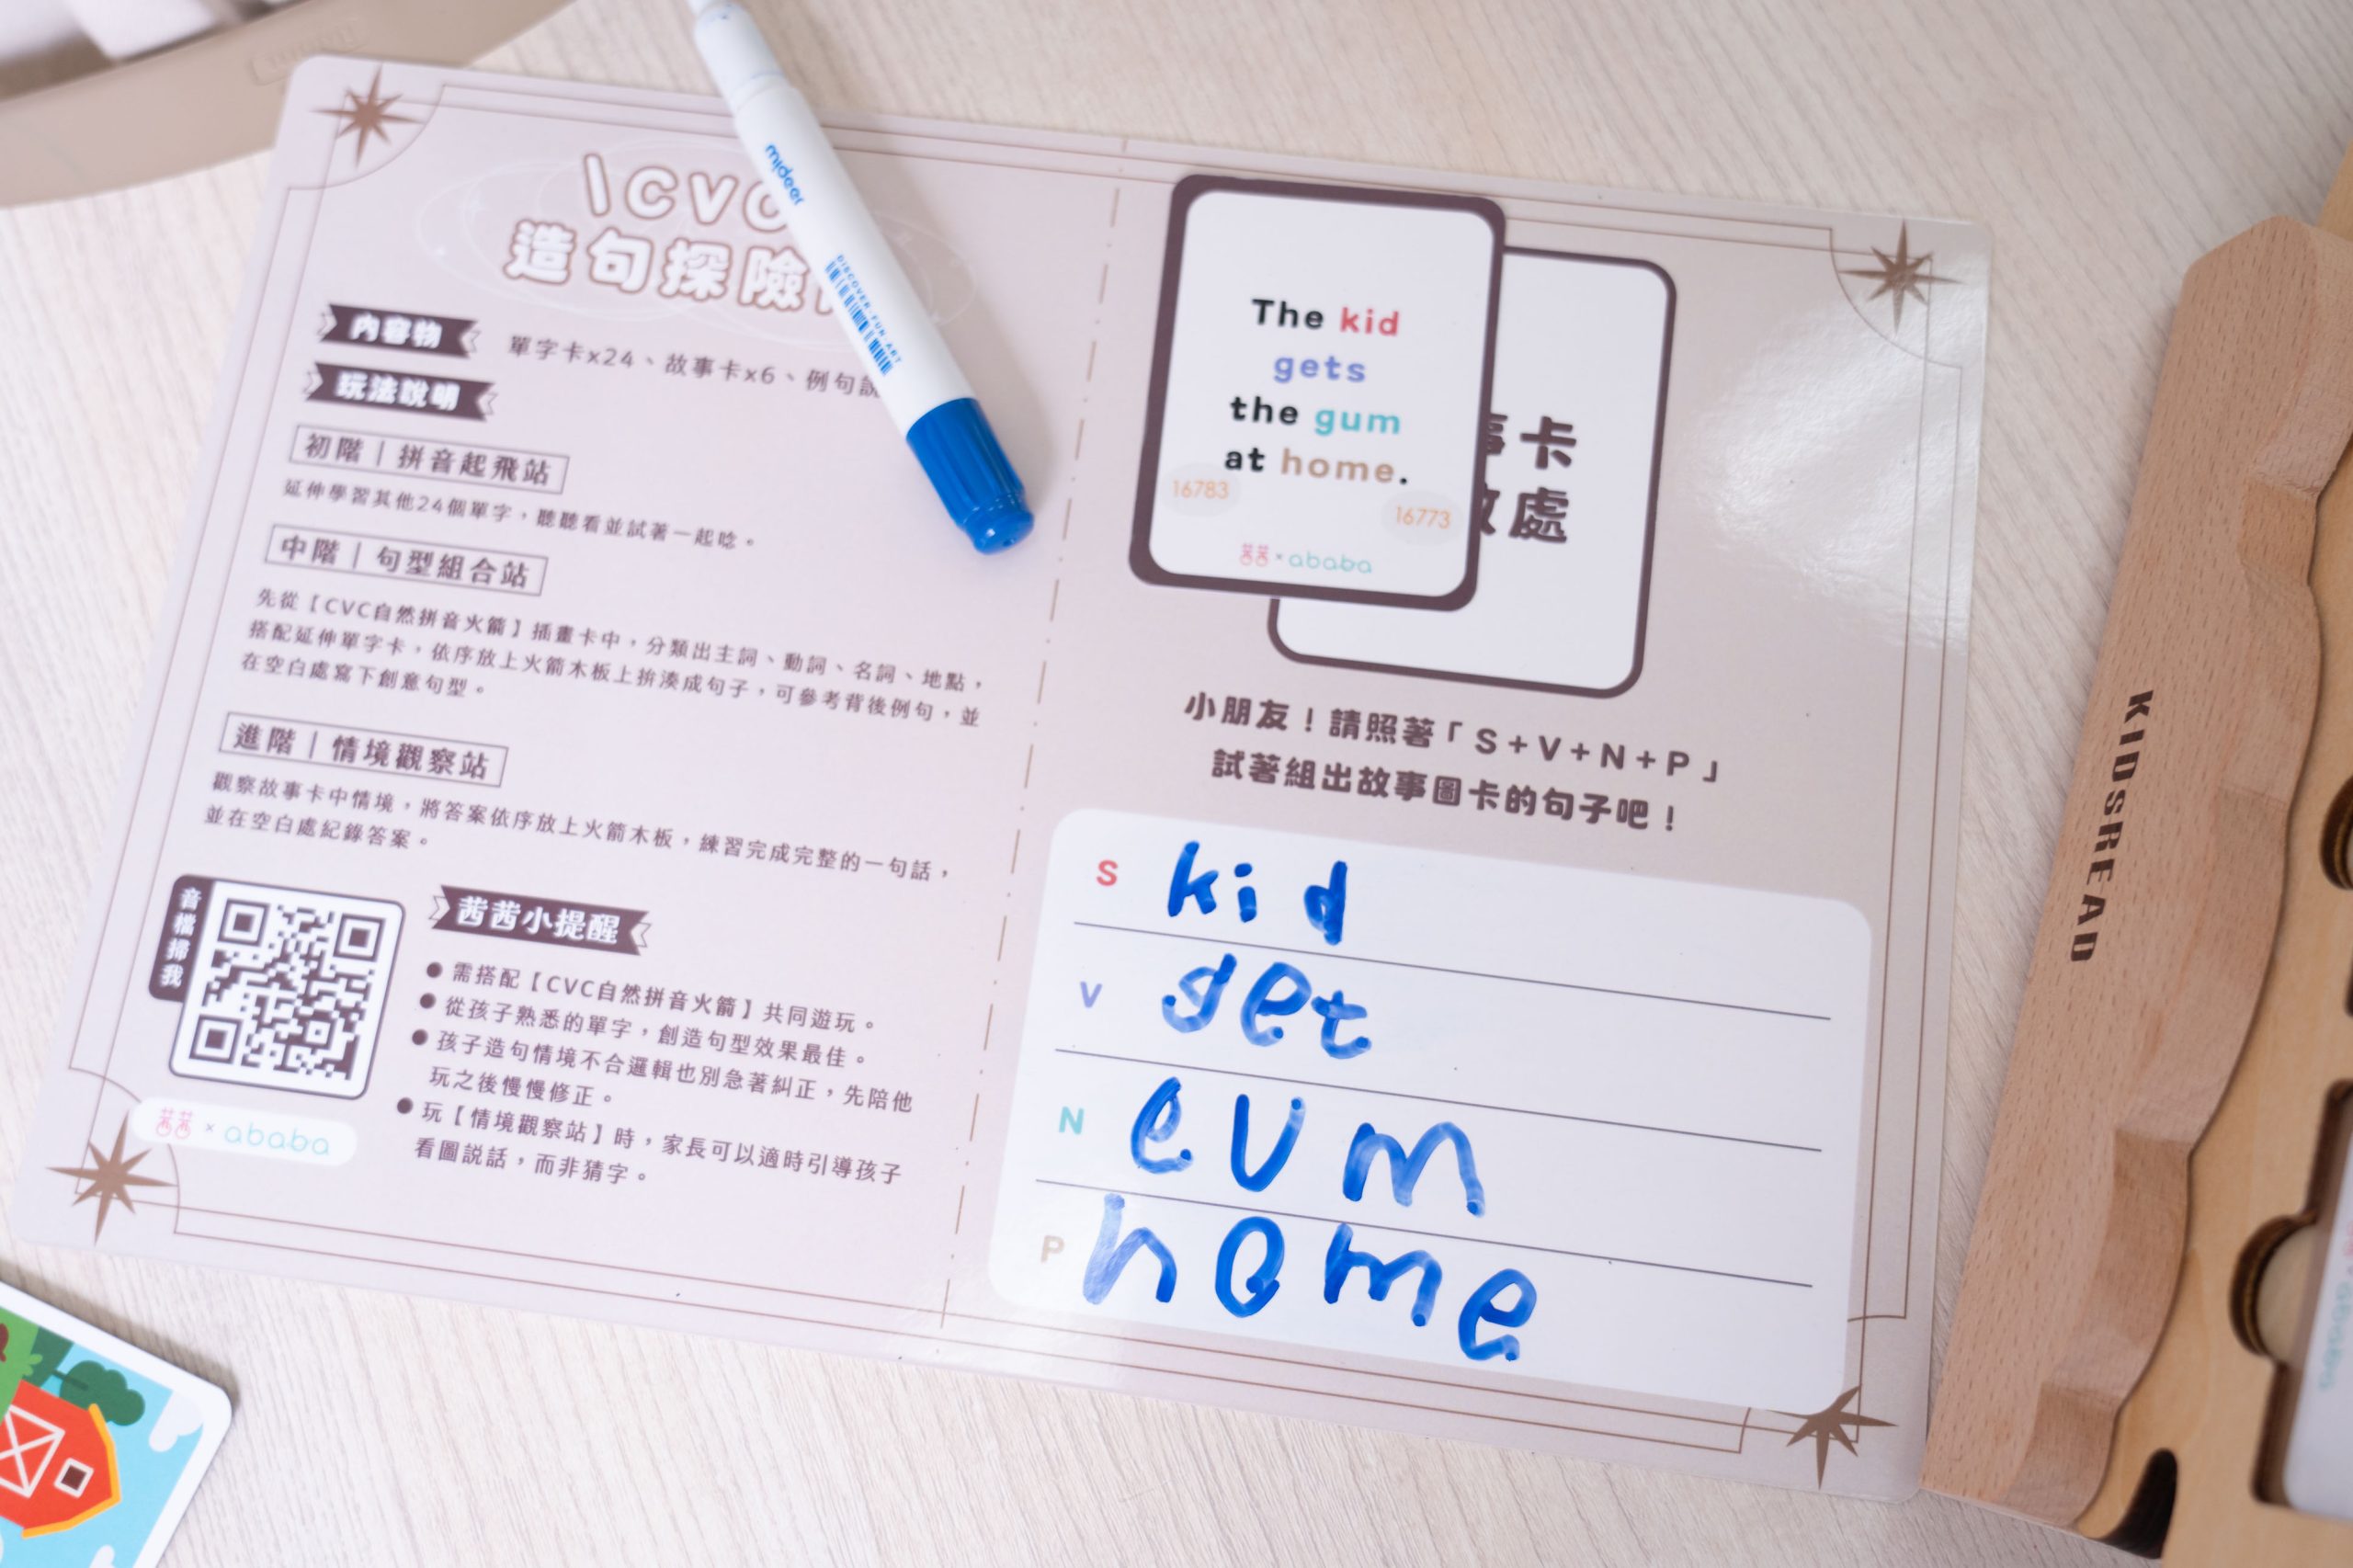 \CVC
造句探險
內容物
單字卡x24、故事卡x6、例句
玩法說明
初階｜拼音起飛站
延伸學習其他24個單字，聽聽看並試著一起唸。
中階｜句型組合站
先從【CVC自然拼音火箭】插畫卡中，分類出主詞、動詞、名詞、地點，
搭配延伸單字卡，依序放上火箭木板上拚湊成句子，可參考背後例句，並
在空白處寫下創意句型。
進階｜情境觀察站
觀察故事卡中情境，將答案依序放上火箭木板，練習完成完整的一句話，
並在空白處紀錄答案。
音檔掃我
茜茜小提醒
●需搭配【CVC自然拼音火箭】共同遊玩。
●從孩子熟悉的單字，創造句型效果最佳。
●孩子造句情境不合邏輯也別急著糾正，先陪他
玩之後慢慢修正。
●玩【情境觀察站】時，家長可以適時引導孩子
看圖説話，而非猜字。
茜茜×ababa
mideer
DISCOVER·FUN·ART
The kid
gets
the gum
at home.
16783
16773
茜茜×ababa
卡
處
小朋友！請照著「S+V+N+P」
試著組出故事圖卡的句子吧！
S kid
V get
N eum
P home
KIDSREAD
ababa